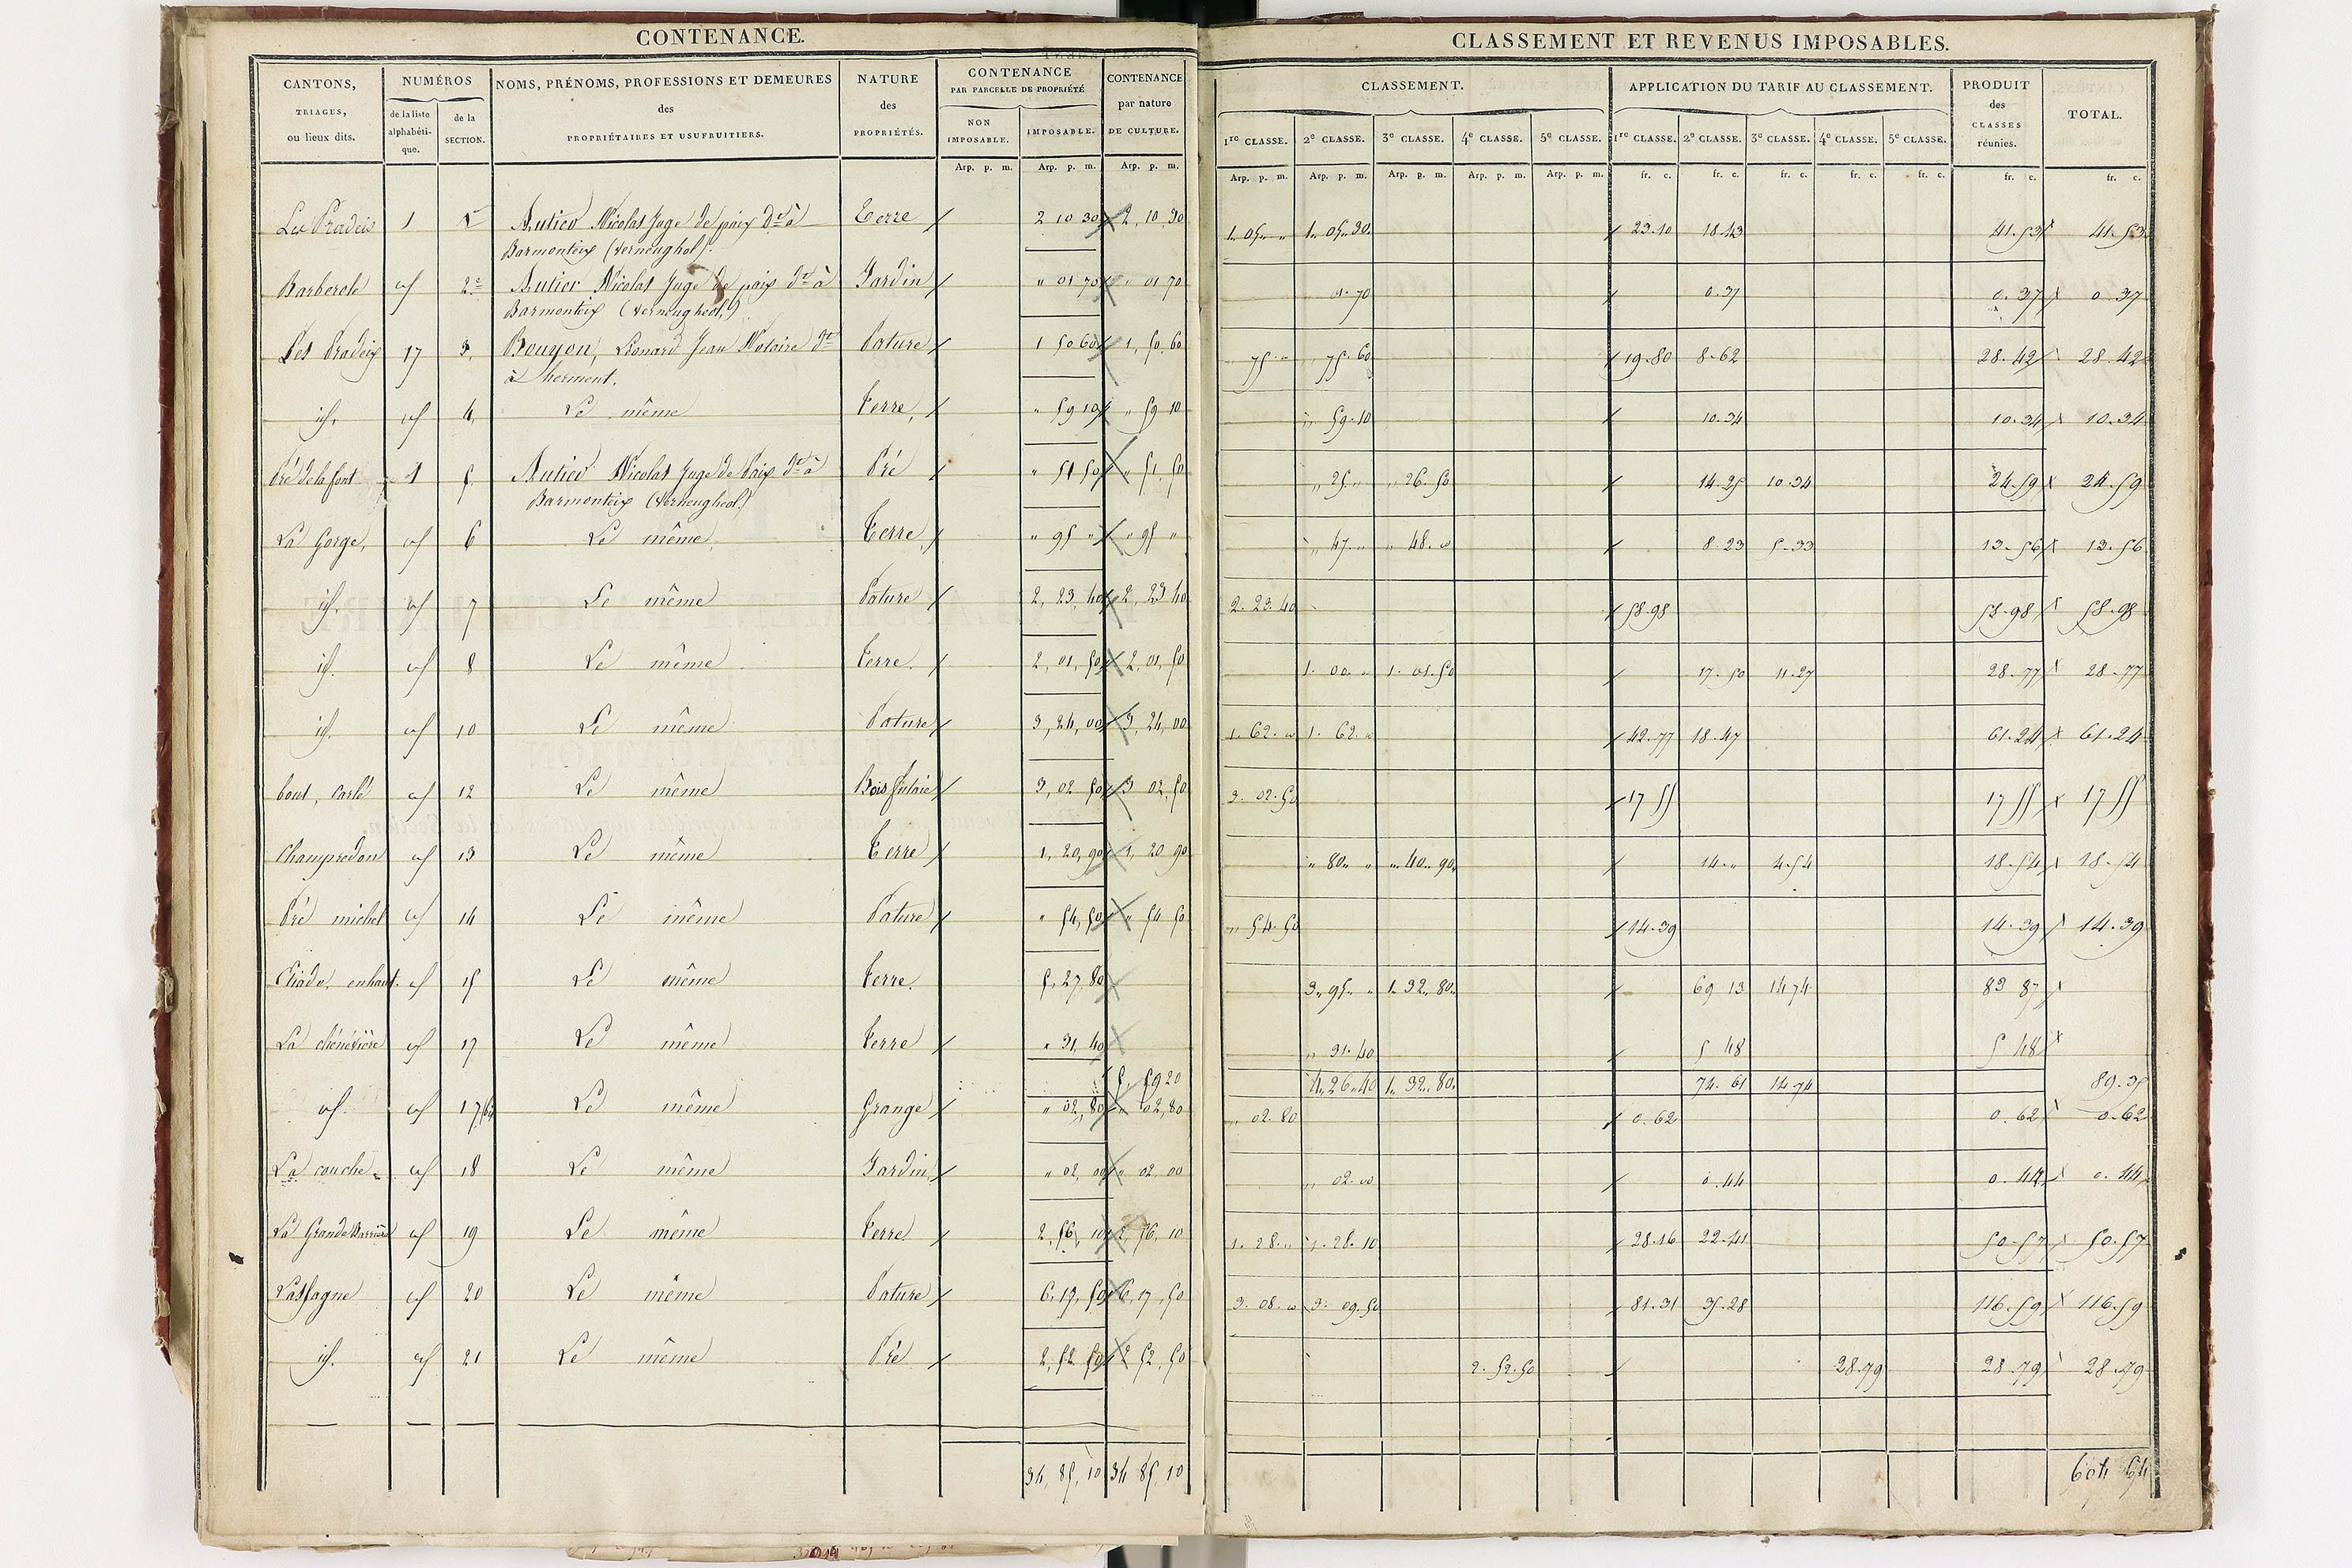 CONTENANCE.
CANTONS,
TRIAGES,
ou lieux dits.
NUMÉROS
de la liste
alphabéti-
que.
de la
SECTION.
NOMS, PRÉNOMS, PROFESSIONS ET DEMEURES
des
PROPRIÉTAIRES ET USUFRUITIERS.
NATURE
des
PROPRIÉTÉS.
CONTENANCE
PAR PARCELLE DE PROPRIÉTÉ
NON
IMPOSABLE.
IMPOSABLE.
CONTENANCE
par nature
DE CULTURE.
Arp. p. m. Arp. p. m. Arp. p. m.
Les Pradeix 1 1er Autier Nicolas Juge de paix dt à Terre 2 10 30 2, 10, 30
Barmonteix (verneughol).
Barberole id 2e Autier Nicolas Juge de paix dt à Jardin " 01 70 " 01 70
Barmonteix (verneugheol,)
Les Pradeix 17 3, Bouyon, Léonard Jean Notaire dt Pature 1 50 60 1, 50, 60
à herment.
id. id 4, Le même Terre, " 59 10 " 59 10
Pré de la font 1 5, Autier Nicolas Juge de Paix dt à Pré " 51 50 " 51, 50
Barmonteix (Verneugheol)
La Gorge, id 6 Le même Terre, " 95 " " 95 "
id. id 7 Le même Pature 2, 23, 40 2, 23 40
id. id 8 Le même Terre. 2, 01, 50 2, 01, 50
id. id 10 Le même Pature 3, 24, 00 3, 24, 00
id 12 Le même Bois futaie 3, 02 50 3 02, 50
Champredon id 13 Le même Terre 1, 20, 90 1, 20 90
Pré michel id 14 Le même Pature " 54, 50 " 54 50
enhaut. id 15 Le même Terre. 5, 27 80
La chénévière id 17 Le même Terre " 31, 40
5, 59 20
id. id 17 bis Le même Grange " 02, 80 " 02, 80
La couche id 18 Le même Jardin " 02, 00 " 02 00
La Grande Barrière id 19 Le même Terre 2, 56, 10 2, 56, 10
Lassagne id 20 Le même Pature 6, 17, 50 6, 17, 50
id. id 21 Le même Pré 2, 52 50 2 52, 50
34, 85, 10 34 85, 10
CLASSEMENT ET REVENUS IMPOSABLES.
CLASSEMENT.
1re CLASSE. 2e CLASSE. 3e CLASSE. 4e CLASSE. 5e CLASSE.
APPLICATION DU TARIF AU CLASSEMENT.
1re CLASSE. 2e CLASSE. 3e CLASSE. 4e CLASSE. 5e CLASSE.
PRODUIT
des
CLASSES
réunies.
TOTAL.
Arp. p. m. Arp. p. m. Arp. p. m. Arp. p. m. Arp. p. m. fr. c. fr. c. fr. c. fr. c. fr. c. fr. c. fr. c.
1. 05. " 1. 05. 30 23.10 18.43 41.53 41.53
01.70 0.37 0.37 0.37
" 75. " 75.60 19.80 8.62 28.42 28.42
" 59.10 10.34 10.34 10.34
" 25. " " 26.50 14.25 10.34 24.59 24.59
" 47. " " 48. " 8.23 5.33 13.56 13.56
2. 23. 40 58.98 58.98 58.98
1. 00. " 1. 01.50 17.50 11.27 28.77 28.77
1. 62. " 1. 62. " 42.77 18.47 61.24 61.24
3. 02. 50 17 55 17 55 17 55
" 80 " " 40. 90 14. " 4.54 18.54 18.54
" 54.50 14.39 14.39 14.39
3. 95. " 1. 32. 80 69 13 14 74 83 87
" 31.40 5 48 5 48
4. 26. 40 1. 32. 80 74.61 14.74 89.35
" 02.80 0.62 0.62 0.62
" 02. " 0.44 0.44 0.44
1. 28. " 1. 28. 10 28.16 22.41 50.57 50.57
3. 08. " 3. 09.50 81.31 35.28 116.59 116.59
2. 52.50 28.79 28.79 28.79
604 54